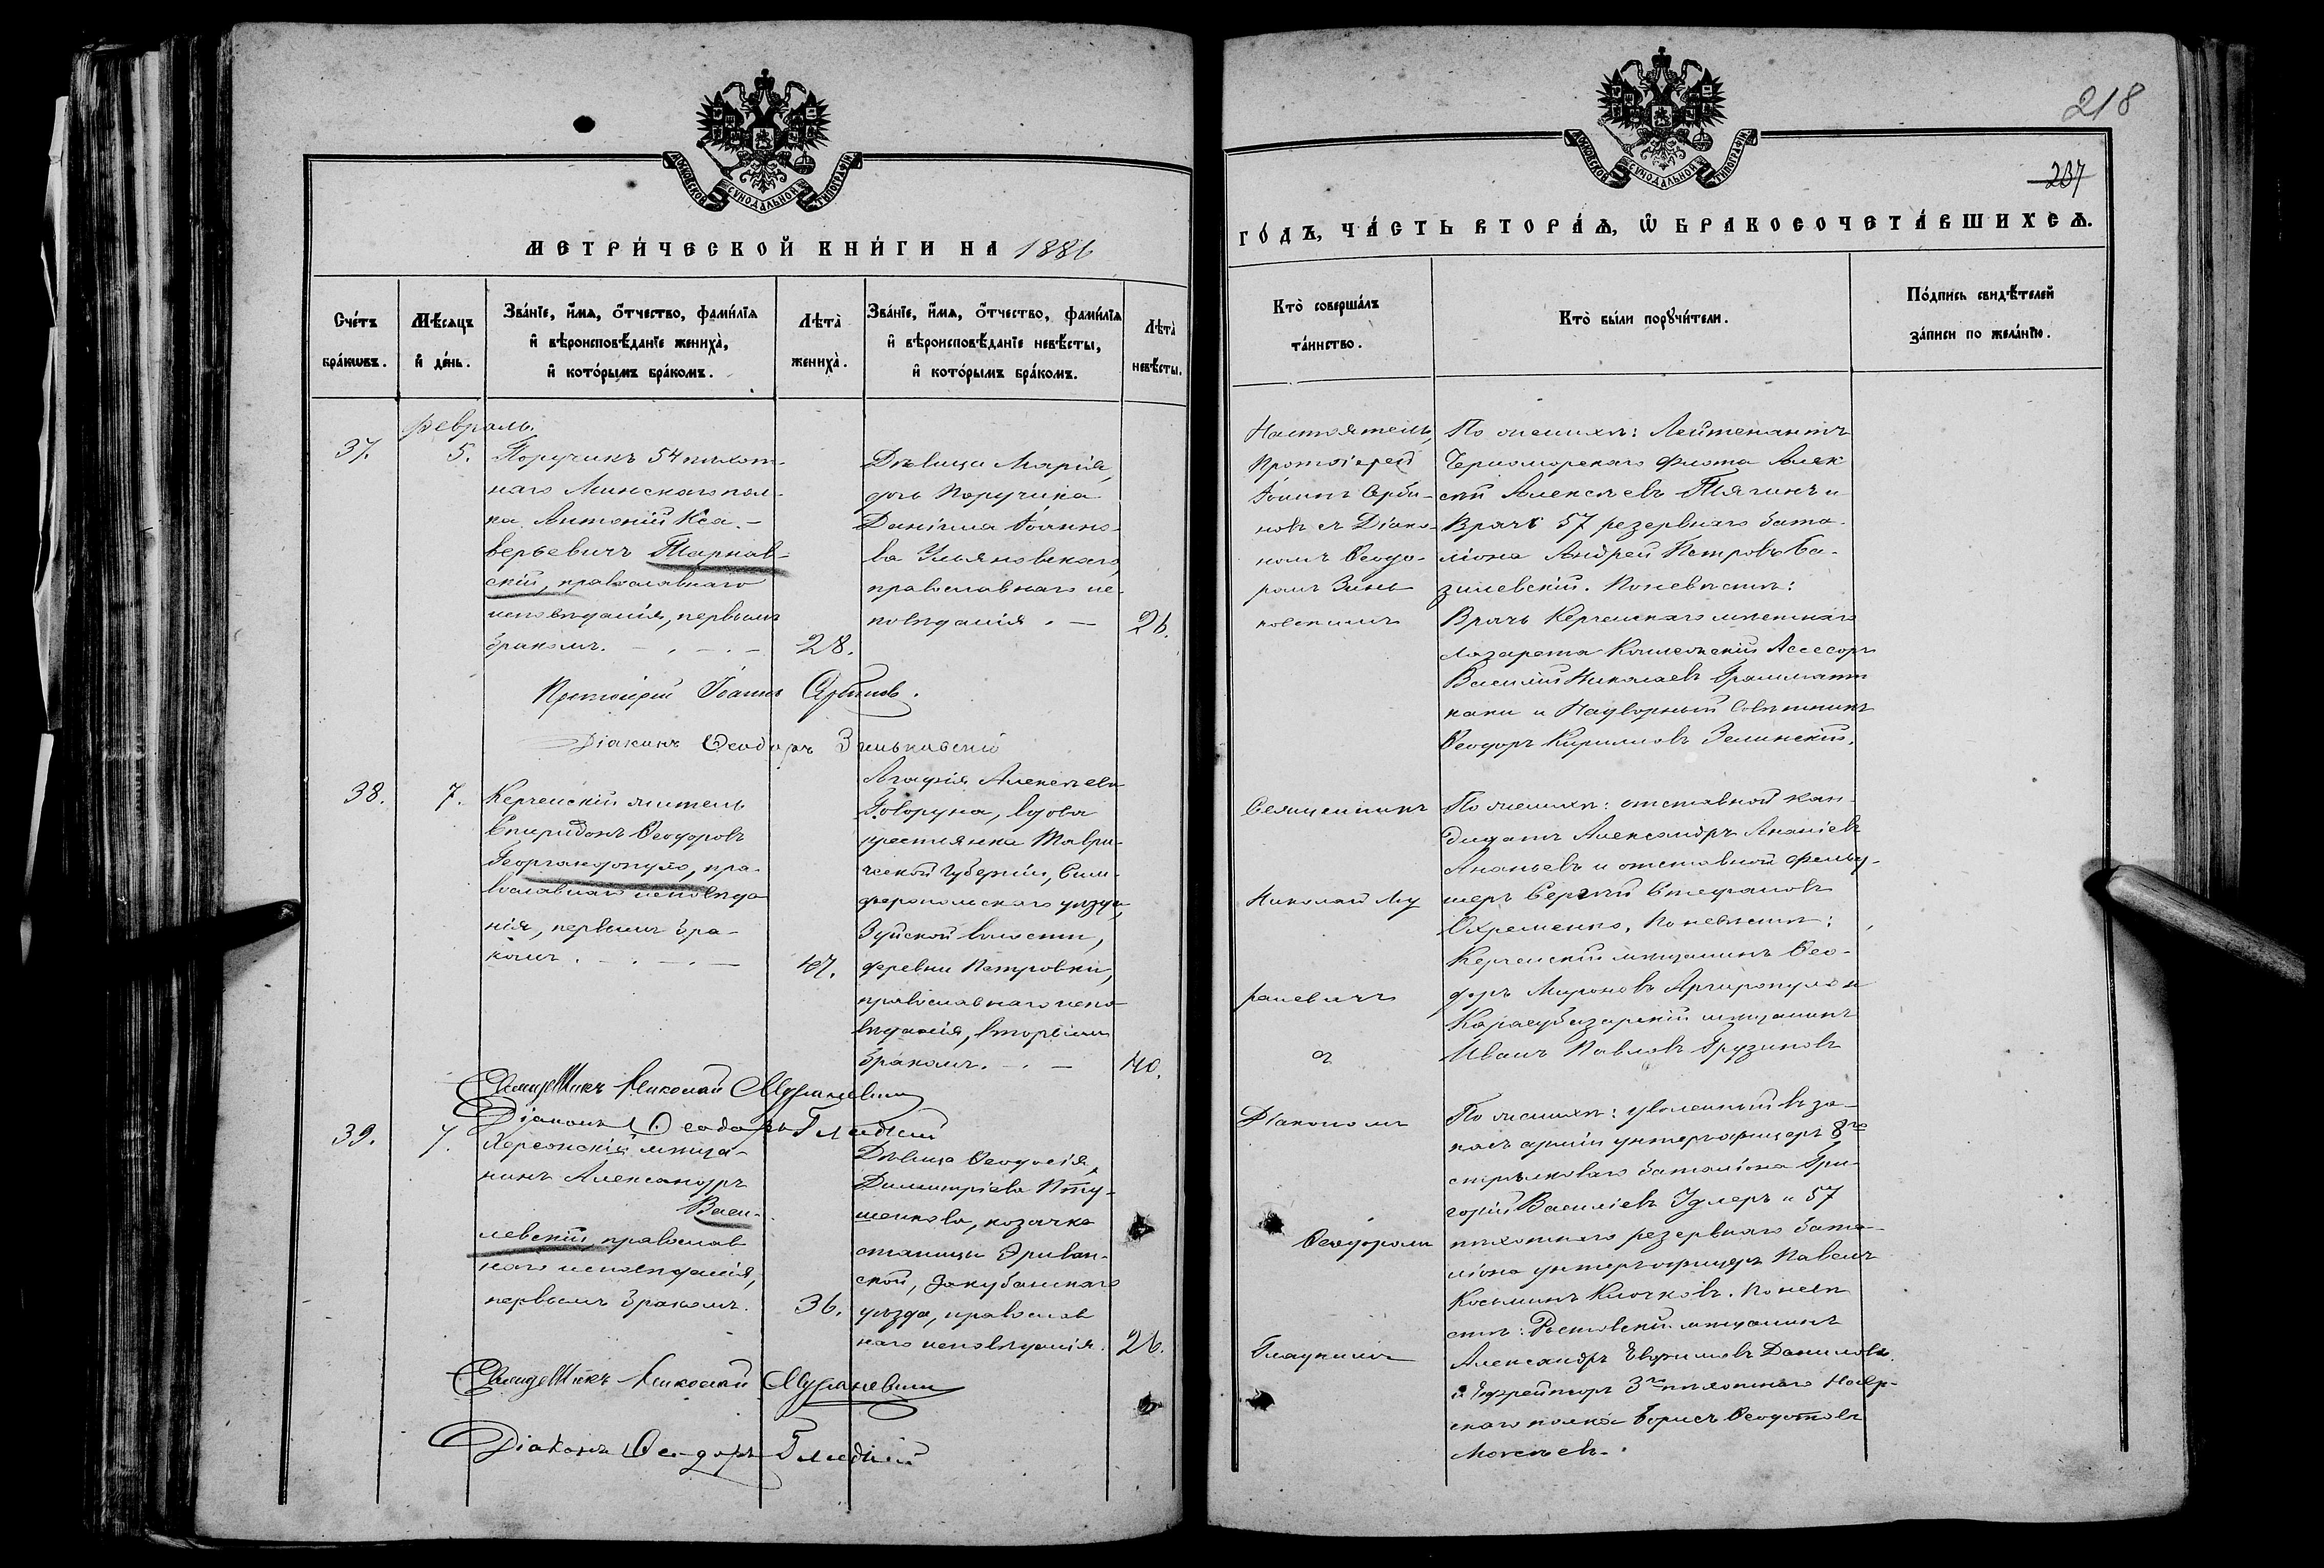 МОСКОВСКОЙ СУНОДАЛЬНОЙ ТИПОГРАФІИ
МЕТРИ́ЧЕСКОЙ КНИ́ГИ НА 1886
Сче́тъ бра́кѡвъ.
Мѣ́сяцъ и҆ де́нь.
Зва́нїе, и҆́мѧ, ѻ҆́тчество, фами́лїѧ
и҆ вѣроисповѣ́данїе жениха̀,
и҆ кото́рымъ бра́комъ.
Лѣта̀ жениха̀.
Зва́нїе, и҆́мѧ, ѻ҆́тчество, фами́лїѧ
и҆ вѣроисповѣ́данїе невѣ́сты,
и҆ кото́рымъ бра́комъ.
Лѣта̀ невѣ́сты.
февраль.
37.
5.
Поручикъ 54 пѣхот-
наго Минскаго пол-
ка Антоній Кса-
верьевичъ Тарнав-
скій, православнаго
исповѣданія, первымъ
бракомъ.
28.
Дѣвица Марія,
дочь Поручика
Даніила Іоанно-
ва Ульяновскаго,
православнаго ис-
повѣданія.
26.
Протоіерей Іоаннъ Сербиновъ.
Діаконъ Ѳеодоръ Зеньковскій
38.
7.
Керченскій житель
Спиридонъ Ѳеодоровъ
Георгандопуло, пра-
вославнаго исповѣда
нія, первымъ бра-
комъ.
47.
Агафія Алексѣева
Говоруна, вдова
крестьянка Таври-
ческой губерніи, Сим-
феропольскаго уѣзда,
Зуйской волости,
деревни Петровки,
православнаго испо-
вѣданія, вторымъ
бракомъ.
40.
Священникъ Николай Мураневичъ
Діаконъ Ѳеодоръ Гладкій
39.
7.
Херсонскій мѣща-
нинъ Александръ
Васи-
левскій, православ
наго исповѣданія,
первымъ бракомъ.
36.
Дѣвица Ѳеодосія
Димитріева Пту-
шенкова, козачка
станицы Эриван-
ской, Закубанскаго
уѣзда, православ
наго исповѣданія.
26.
Священникъ Николай Мураневичъ
Діаконъ Ѳеодоръ Гладкій
218
237
МОСКОВСКОЙ СУНОДАЛЬНОЙ ТИПОГРАФІИ
ГО́ДЪ, ЧА́СТЬ ВТОРА́Ѧ, Ѡ҆ БРАКОСОЧЕТА́ВШИХСѦ.
Кто̀ соверша́лъ
та́инство.
Кто̀ бы́ли порꙋчи́тели.
По́дпись свидѣ́телей
за́писи по жела́нїю.
Настоятель,
Протоіерей
Іоаннъ Серби-
новъ съ Діако-
номъ Ѳеодо-
ромъ Зинь
ковскимъ
По женихѣ: Лейтенантъ
Черноморскаго флота Алек
сѣй Алексѣевъ Тягинъ и
Врачъ 57 резервнаго бата-
ліона Андрей Петровъ Ба-
зилевскій. По невѣстѣ:
Врачъ Керченскаго мѣстнаго
лазарета Коллежскій Ассесоръ
Василій Николаевъ Граммати
каки и Надворный Совѣтникъ
Ѳеодоръ Кириловъ Зелинскій.
Священникъ
Николай Му
раневичъ
съ
По женихѣ: отставной кан-
дидатъ Александръ Ананіевъ
Ананьевъ и отставной фельд-
шеръ Сергѣй Стефановъ
Охременко. По невѣстѣ:
Керченскій мѣщанинъ Ѳео-
доръ Мироновъ Аргиропуло и
Карасубазарскій мѣщанинъ
Иванъ Павловъ Грузиновъ
Діакономъ
Ѳеодоромъ
Гладкимъ
По женихѣ: уволенный въ за-
пасъ арміи унтеръ офицеръ 8го
стрѣлковаго баталіона Гри-
горій Василіевъ Удлеръ и 57
пѣхотнаго резервнаго бата-
ліона унтеръ офицеръ Павелъ
Косьминъ Клочковъ. По невѣ
стѣ: Ростовскій мѣщанинъ
Александръ Евфимовъ Даниловъ
и Ефрейторъ 3го пѣхотнаго
скаго полка Борисъ Ѳеодотовъ